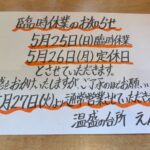 臨時休業のお知らせ
5月25日(日)臨時休業
5月26日(月)定休日
とさせていただきます
をおかけいたしますが、ご了承のほどお願い
5月27日(火)より通常営業させていただき
温盛の台所 え